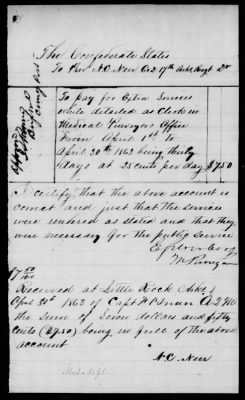 The Confederate States
To Priv N.C. Neer Co I 17th Arks Regt Dr
To pay for Extra Services
while detailed as Clerk in
Medical Purveyors Office
From April 1st to
April 30th 1863 being thirty
days at 25 cents per day $7.50
I certify that the above account is
correct and just that the services
were rendered as stated and that they
were necessary for the public service
$7 50/100
Received at Little Rock Arks
Apr 30th 1863 of Capt
the sum of Seven dollars and fifty
Cents ($7.50) being in full of the above
account
N.C. Neer